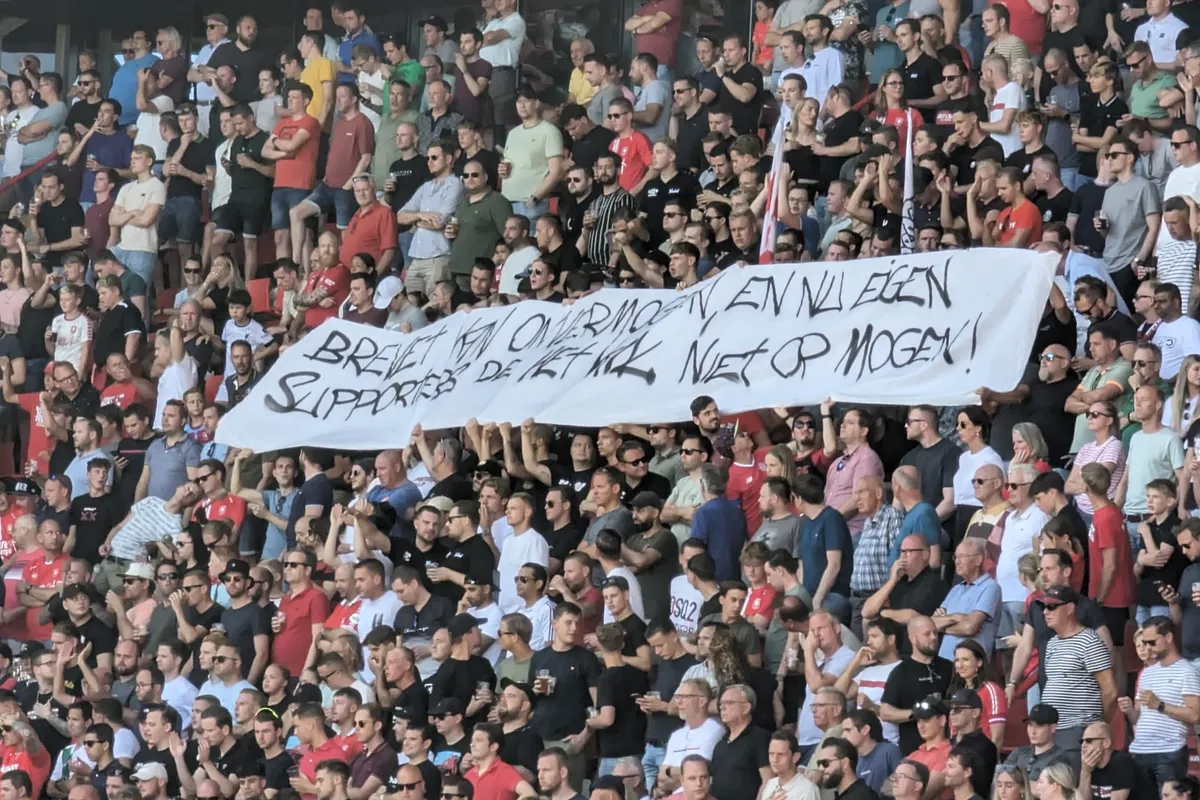 BREVET KON ONVERMOGEN, EN NU EIGEN
SUPPORTERS DE HET NIET OP MOGEN!
DSQ2